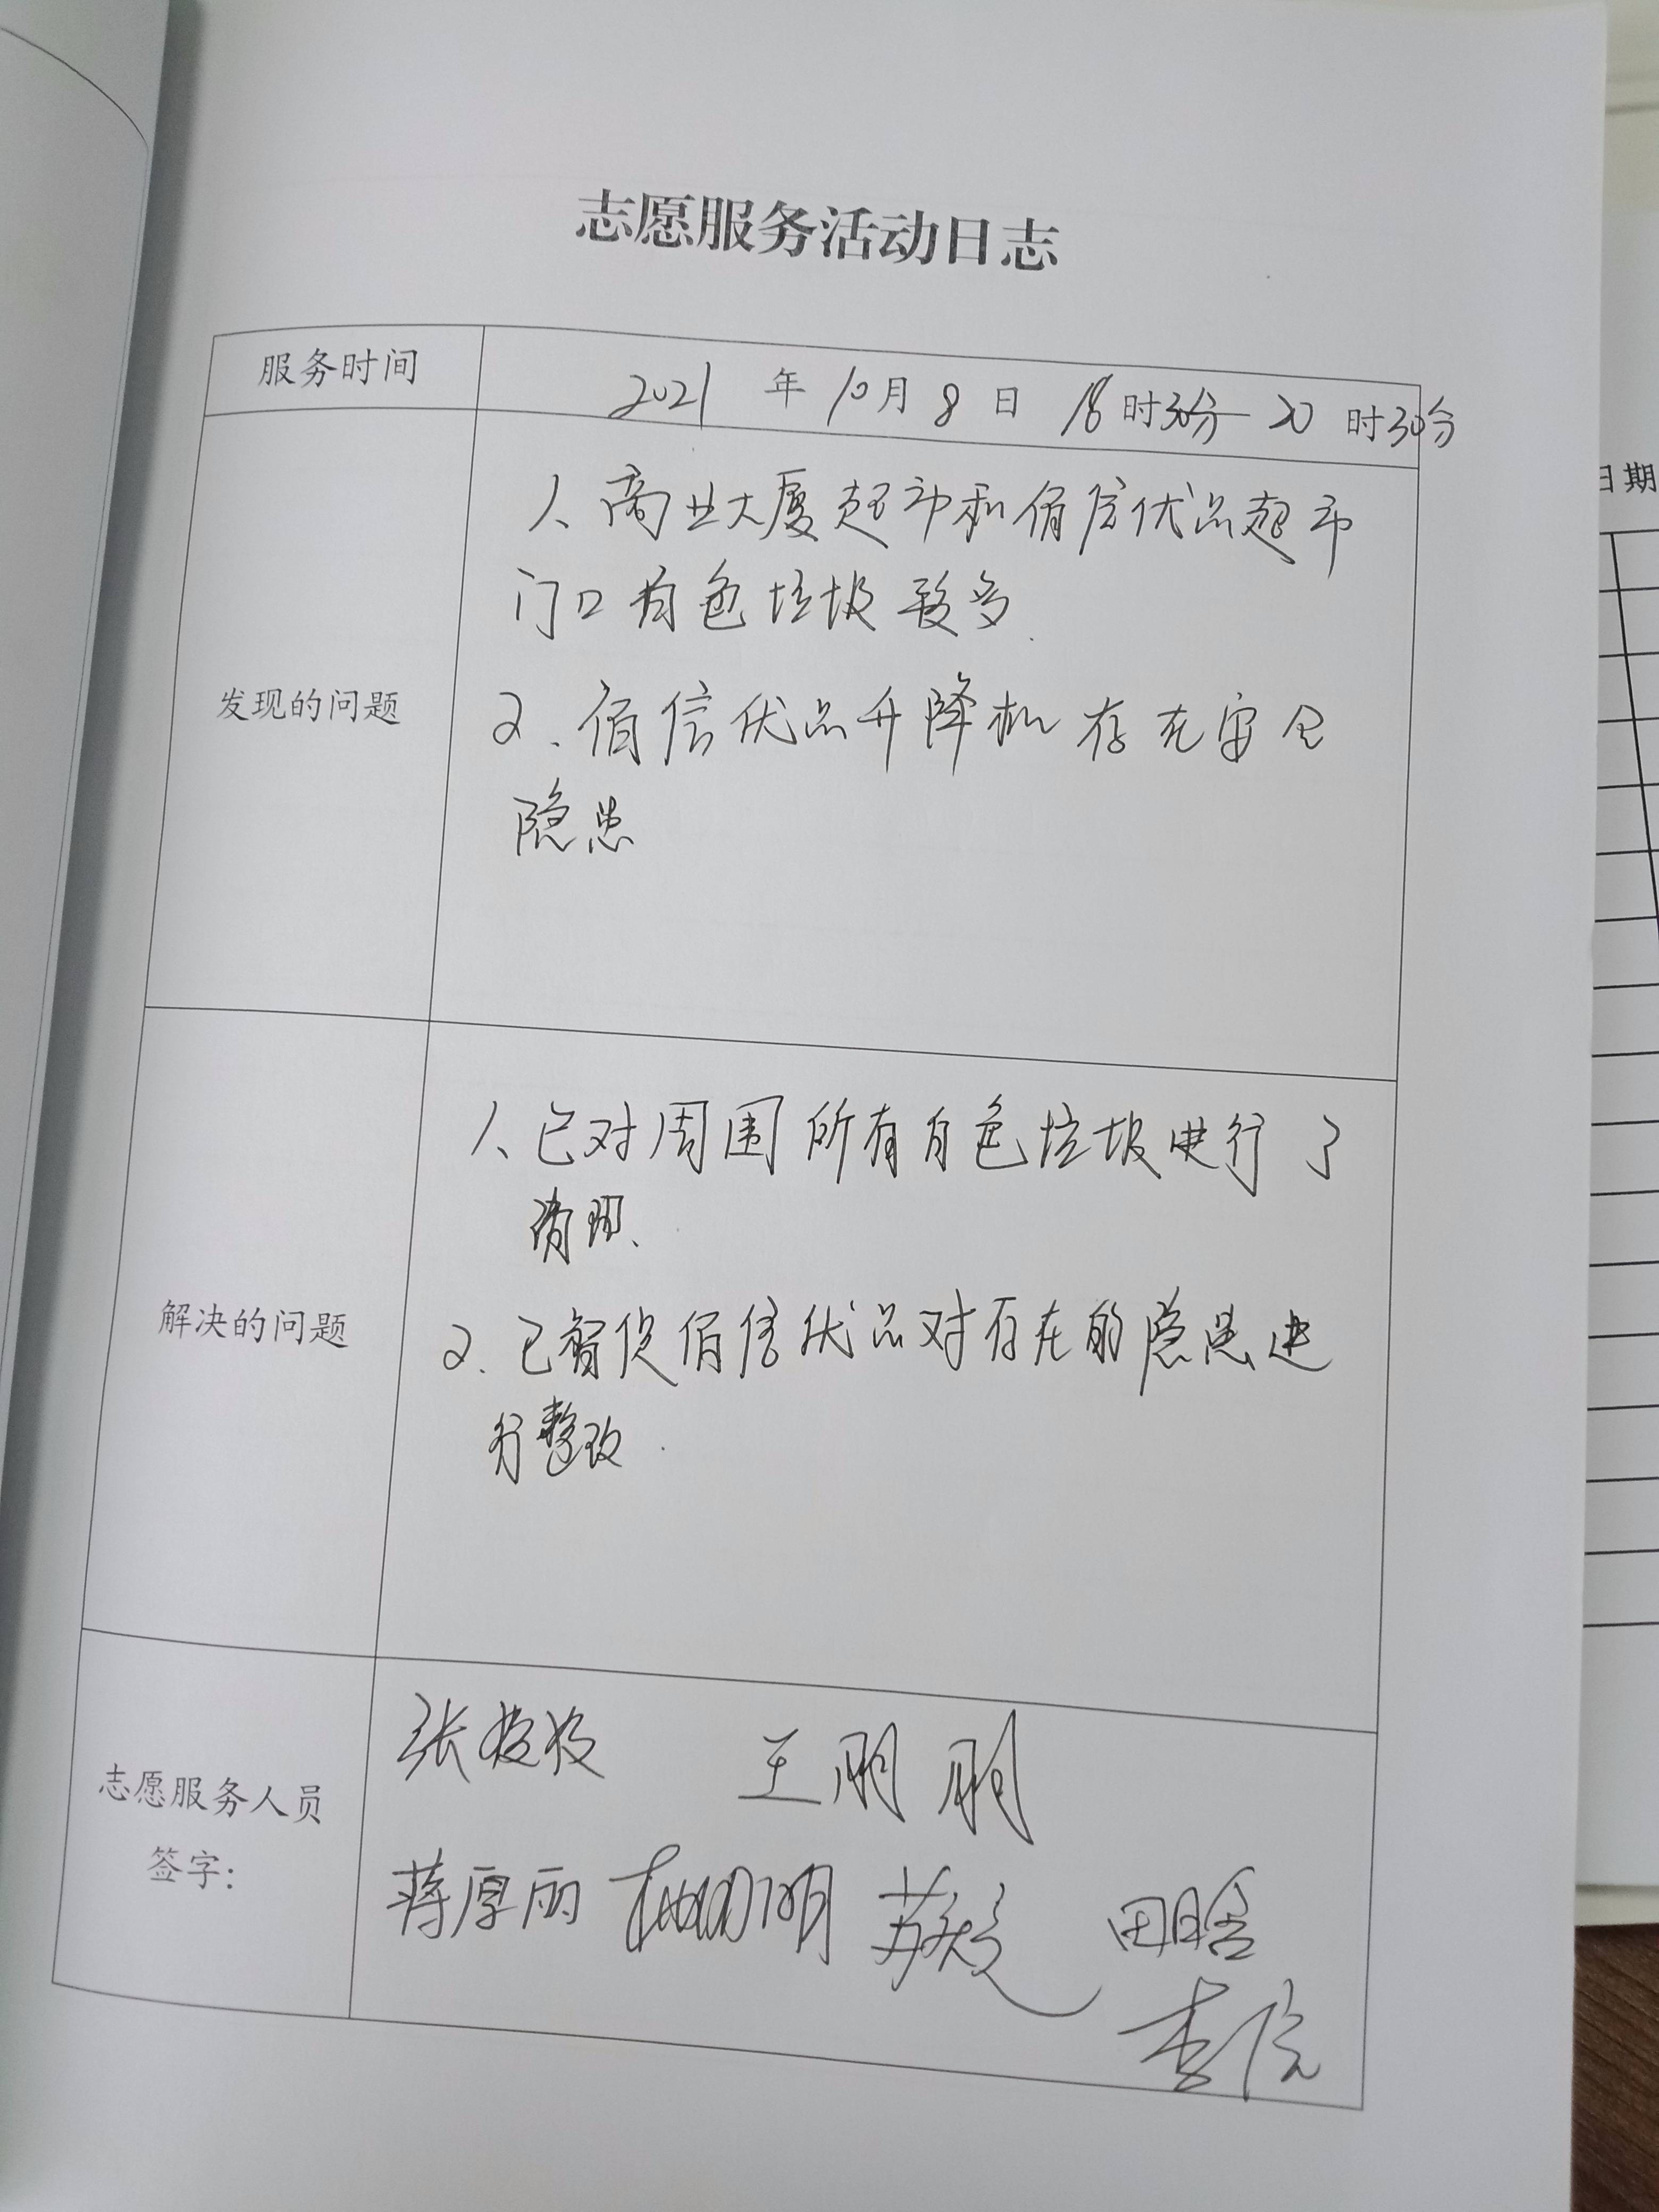 志愿服务活动日志
服务时间
2021 年 10月 8 日 18时30分—20 时30分
发现的问题
1、商业大厦超市和佰信优品超市
门口有色垃圾较多.
2、佰信优品升降机存在安全
隐患
解决的问题
1、已对周围所有白色垃圾进行了
清理、
2.已督促佰信优品对存在的隐患进
行整改.
志愿服务人员
签字:
张
王朋朋
蒋厚丽
田晗
日期